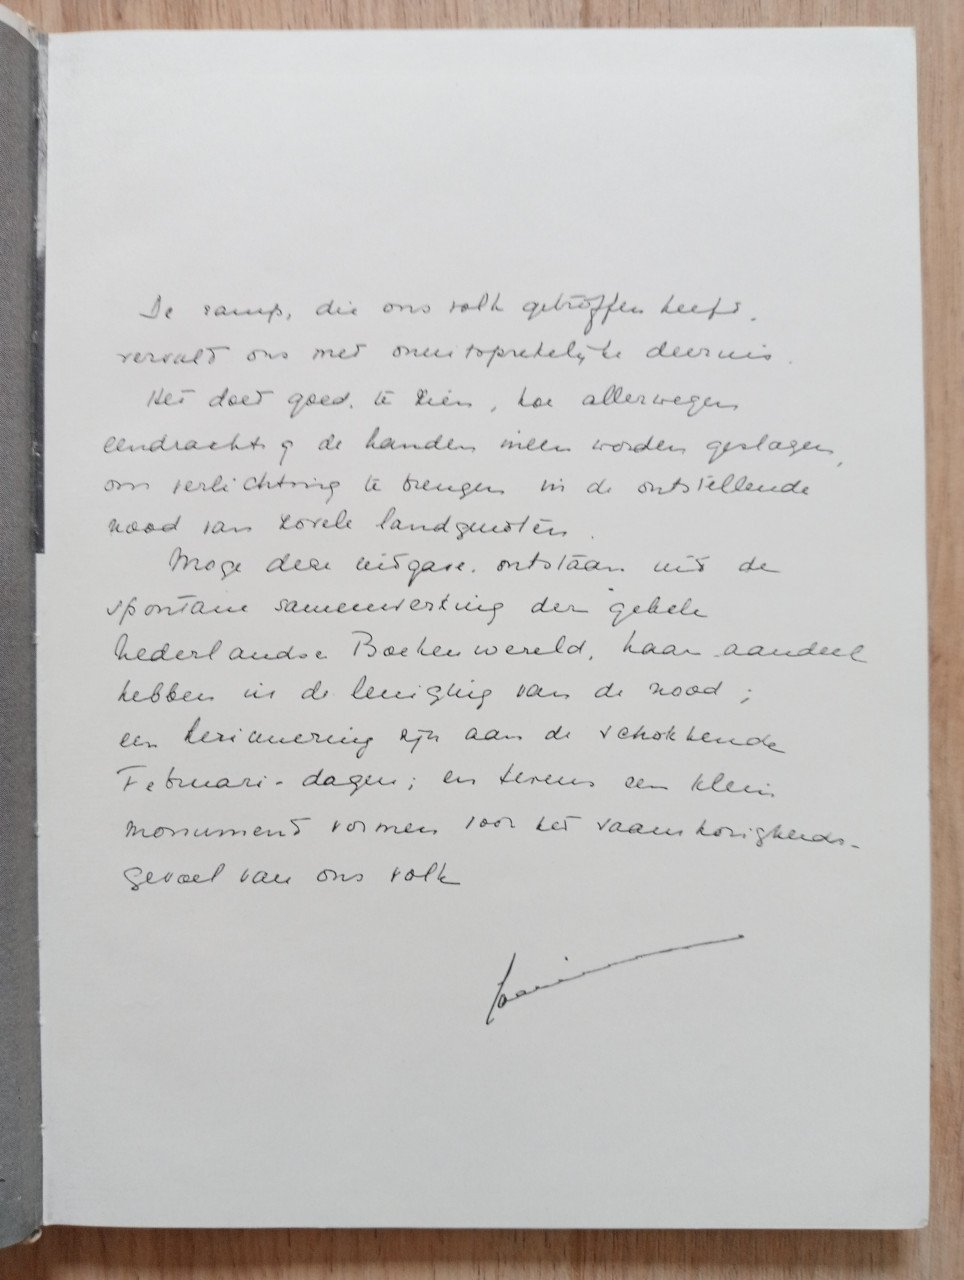 De ramp, die ons volk getroffen heeft,
vervult ons met onuitsprekelijke deernis.
Het doet goed, te zien, hoe allerwegen
eendrachtig de handen ineen worden geslagen,
om verlichting te brengen in de ontstellende
nood van zovele landgenoten.
Moge deze uitgave, ontstaan uit de
spontane samenwerking der gehele
Nederlandse Boekenwereld, haar aandeel
hebben in de leniging van de nood;
een herinnering zijn aan de schokkende
Februari-dagen; en tevens een klein
monument vormen voor het saamhorigheids-
gevoel van ons volk